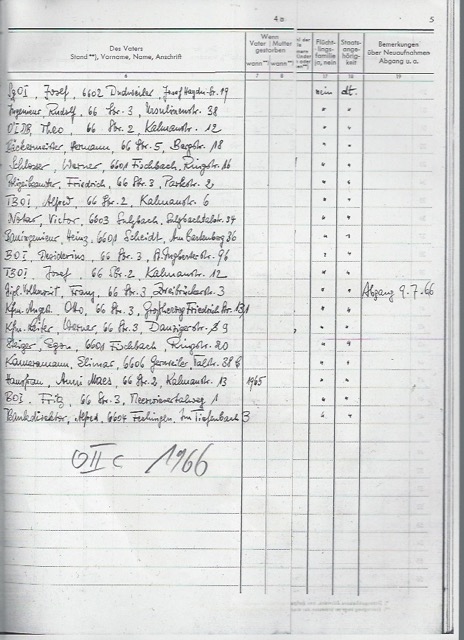 4a
5
Des Vaters
Stand **), Vorname, Name, Anschrift
Wenn
Vater | Mutter
gestorben
wann **) wann **)
Flücht-
lings-
familie
ja, nein
Staats-
ange-
hörig-
keit
Bemerkungen
über Neuaufnahmen
Abgang u. a.
6 7 8 17 18 19
Josef, 6602 Dudweiler, Josef Haydn-Str. 19 nein dt.
Ingenieur, Rudolf, 66 Sbr. 3, Ursulinenstr. 38 " "
Theo, 66 Sbr. 2, Kalmanstr. 12 " "
Bäckermeister, Hermann, 66 Sbr. 5, Bergstr. 18 " "
Schlosser, Werner, 6601 Fischbach, Ringstr. 16 " "
Friedrich, 66 Sbr. 3, Parkstr. 2 " "
TBOI, Alfred, 66 Sbr. 2, Kalmanstr. 6 " "
Notar, Victor, 6603 Sulzbach, Sulzbachtalstr. 34 " "
Bauingenieur, Heinz, 6601 Scheidt, Am Bartenberg 36 " "
BOI, Desiderius, 66 Sbr. 3, St. Ingberterstr. 96 " "
TBOI, Josef, 66 Sbr. 2, Kalmanstr. 12 " "
Dipl. Volkswirt, Franz, 66 Sbr. 3, Zweibrückerstr. 3 " " Abgang 9.7.66
Kfm. Angest. Otto, 66 Sbr. 3, Großherzog Friedrich Str. 131 " "
Werner, 66 Sbr. 3, Danzigerstr. 9 " "
Steiger, Egon, 6601 Fischbach, Ringstr. 20 " "
Kameramann, Elimar, 6606 Gersweiler, Talstr. 38 " "
Hausfrau, Anni Maas, 66 Sbr. 2, Kalmanstr. 13 1965 " "
BOI, Fritz, 66 Sbr. 3, Meerwiesertalweg 1 " "
Bankdirektor, Alfred, 6604 Fechingen, Im Tiefenbach 3 " "
OII c 1966